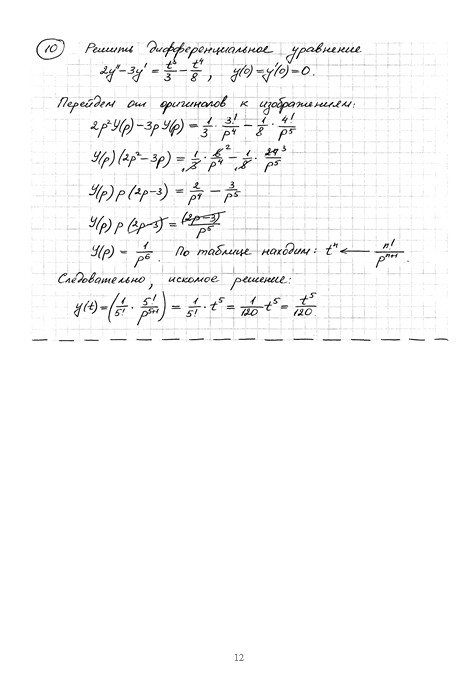 10 Решить дифференциальное уравнение
2y'' − 3y' = t³/3 − t⁴/8, y(0) = y'(0) = 0.
Перейдем от оригиналов к изображениям:
2p²Y(p) − 3pY(p) = 1/3 · 3!/p⁴ − 1/8 · 4!/p⁵
Y(p)(2p² − 3p) = 1/3 · 6²/p⁴ − 1/8 · 24³/p⁵
Y(p) p (2p − 3) = 2/p⁴ − 3/p⁵
Y(p) p (2p − 3) = (2p − 3)/p⁵
Y(p) = 1/p⁶. По таблице находим: tⁿ ← n!/pⁿ⁺¹
Следовательно, искомое решение:
y(t) = (1/5! · 5!/p⁵⁺¹) = 1/5! · t⁵ = 1/120 t⁵ = t⁵/120
12